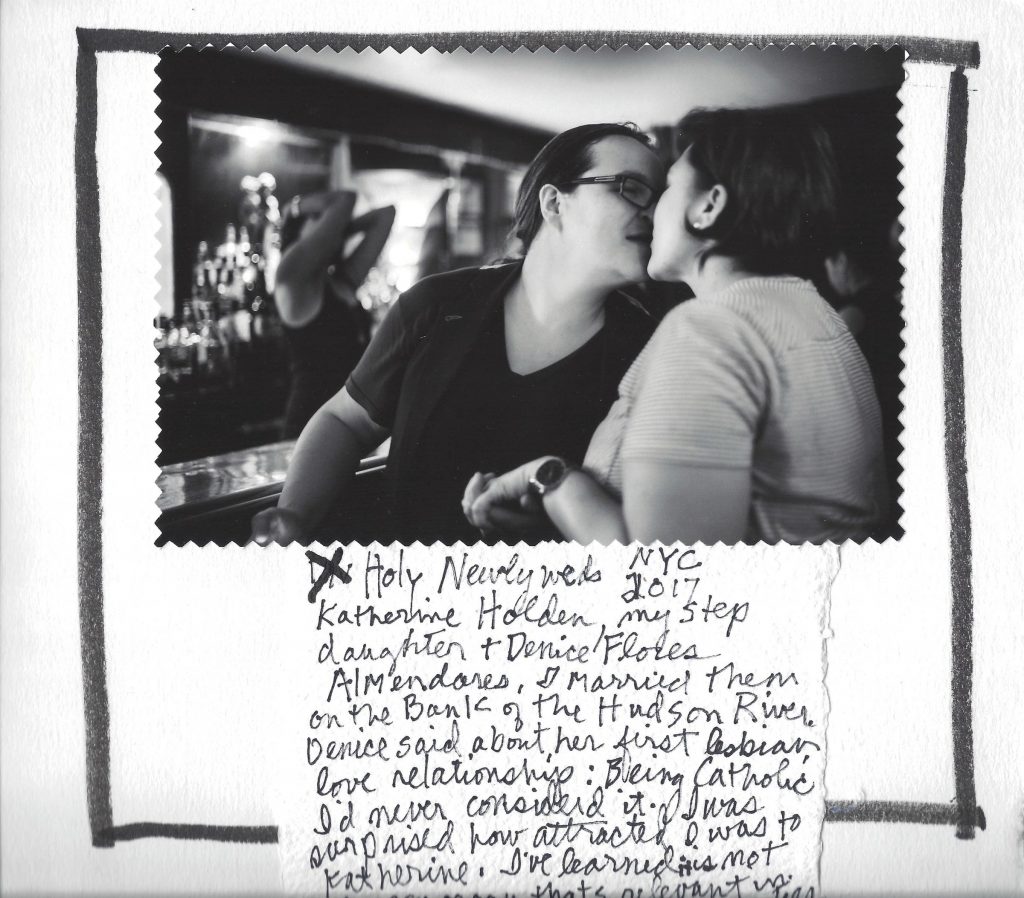 Holy Newlyweds NYC
2017
Katherine Holden, my step
daughter + Denice Flores
Almendares. I married them
on the Bank of the Hudson River.
Denice said about her first lesbian
love relationship: Being Catholic
I'd never considerd it. I was
surprised how attracted I was to
Katherine. I've learned its not
that's relevant